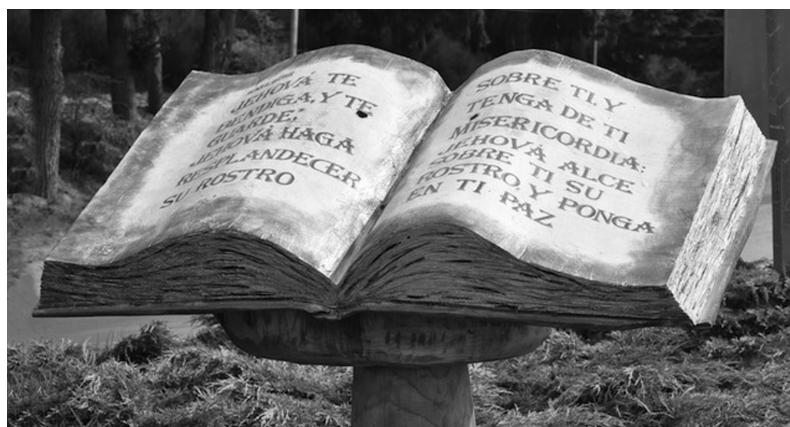 JEHOVÁ TE
BENDIGA, Y TE
GUARDE;
JEHOVÁ HAGA
RESPLANDECER
SU ROSTRO
SOBRE TI, Y
TENGA DE TI
MISERICORDIA:
JEHOVÁ ALCE
SOBRE TI SU
ROSTRO, Y PONGA
EN TI PAZ